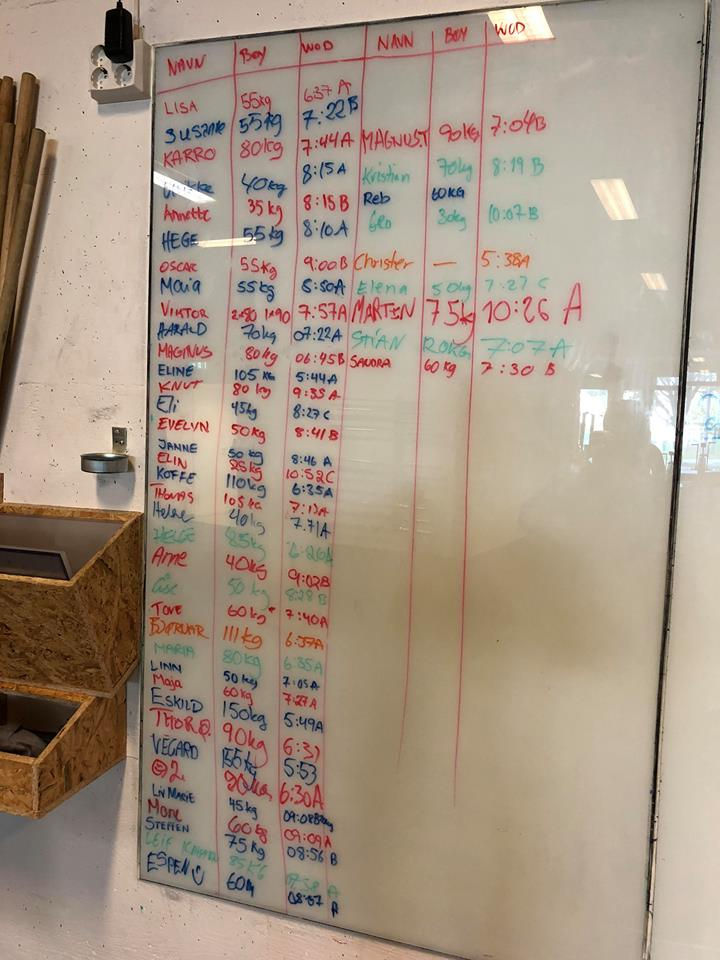 NAVN BOY WOD NAVN BOY WOD
LISA 55kg 6:37 A
SUSANNE 55kg 7:22B
KARRO 80kg 7:44A MAGNUS T 90kg 7:04B
40kg 8:15A Kristian 70kg 8:19 B
Annette 35kg 8:15B Reb 60KG
HEGE 55kg 8:10A Gro 30kg 10:07 B
OSCAR 55kg 9:00B Christer — 5:38A
Maia 55kg 5:50A Elena 50kg 7:27 C
VIKTOR 2x80 1x90 7:57A MARTIN 75kg 10:26 A
HARALD 70kg 07:22A STIAN 120KG 7:07A
MAGINUS 80kg 06:45B SANDRA 60kg 7:30 B
ELINE 105 KG 5:44A
KNUT 80 kg 9:35A
Eli 45kg 8:27 C
EVELYN 50kg 8:41B
JANNE 50 kg 8:46 A
ELIN 25kg 10:52C
KOFFE 110kg 6:35A
Thomas 105kg 7:13A
Helene 40kg 7.71A
HELGE 85kg
Arne 40kg 9:02B
Åse 50kg 8:28 B
TOVE 60kg 7:40A
111kg 6:37A
MARIA 80kg 6:35A
LINN 50kg 7:05A
Maja 60kg 7:27A
ESKILD 150kg 5:49A
THOR Ø. 90kg 6:31
VEGARD 155kg 5:53
2. 90kg 6:30A
LIV MARIE 45kg
Mone 60kg 09:09A
STEFFEN 75kg 08:56 B
LEIF 85KG :58 A
ESPEN 60kg 08:57 A